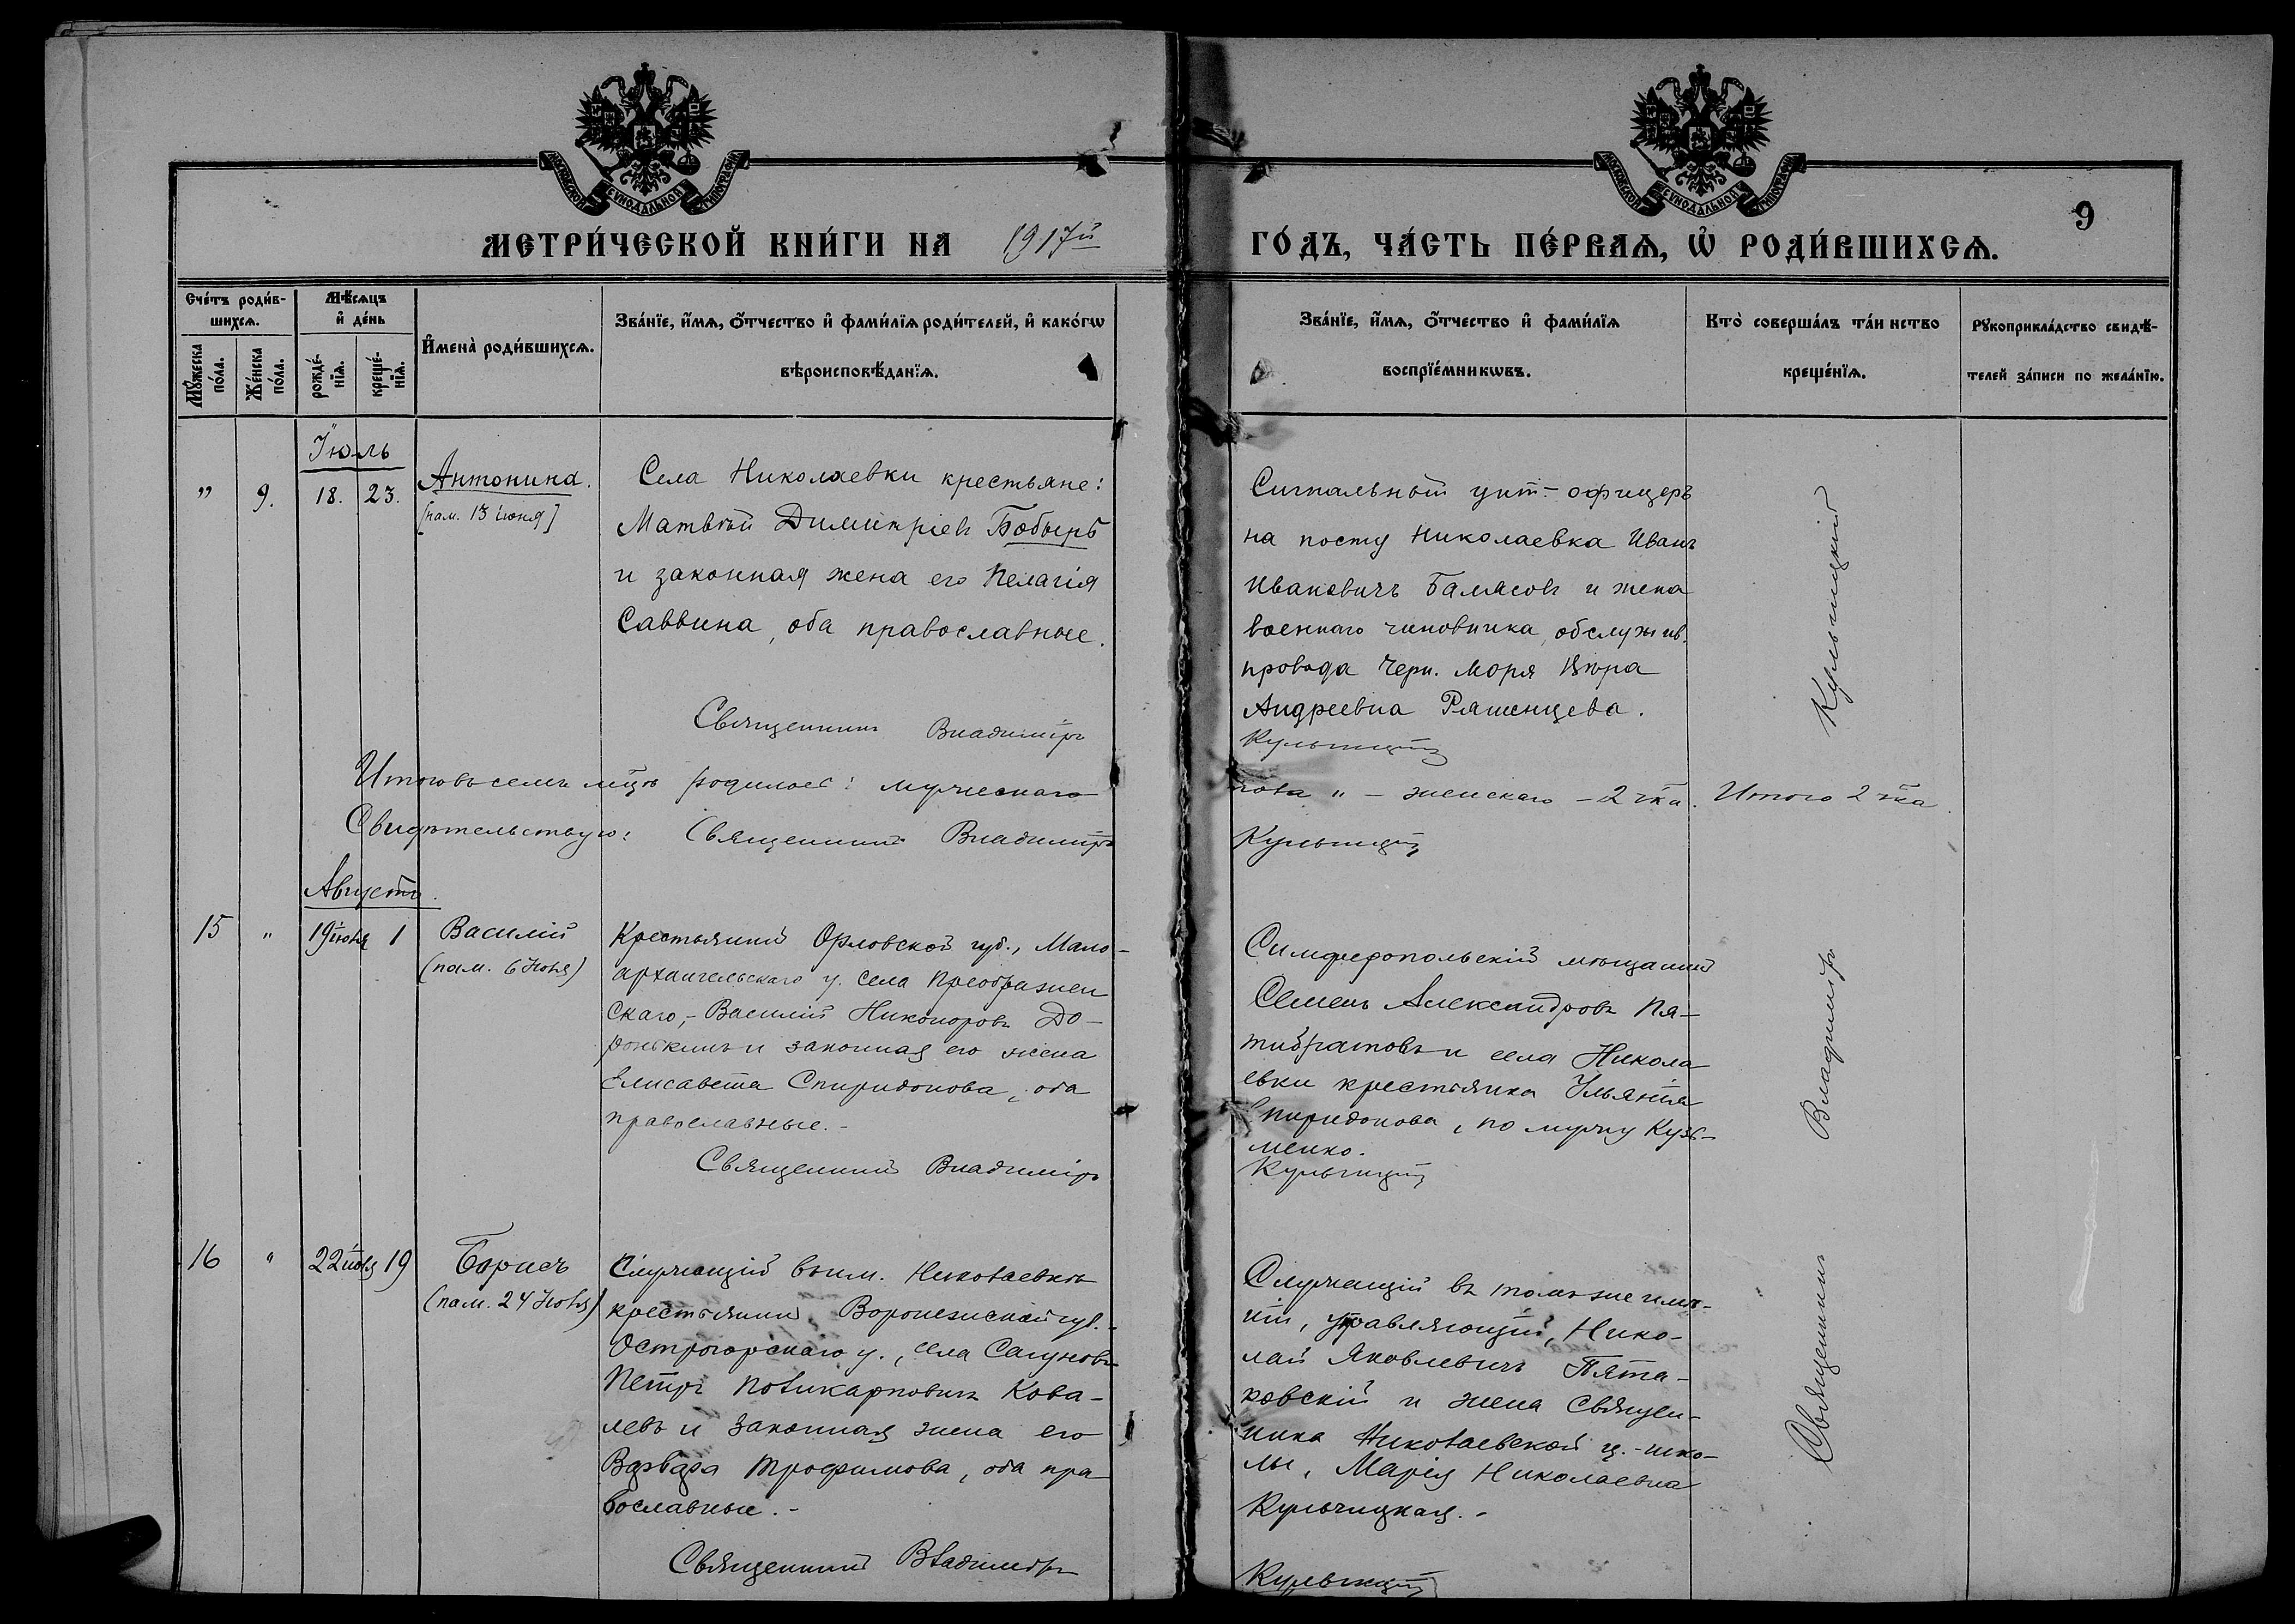 МОСКОВСКОЙ СѴНОДАЛЬНОЙ ТИПОГРАФІИ
МОСКОВСКОЙ СѴНОДАЛЬНОЙ ТИПОГРАФІИ
9
МЕТРИ́ЧЕСКОЙ КНИ́ГИ НА 1917й
ГО́ДЪ, ЧА́СТЬ ПЕ́РВАѦ, Ѡ҆ РОДИ́ВШИХСѦ.
Сче́тъ роди́в-
шихсѧ.
Мꙋ́жеска
по́ла.
Же́нска
по́ла.
Мѣ́сѧцъ
и҆ де́нь
рожде́-
нїѧ.
креще́-
нїѧ.
И҆мена̀ роди́вшихсѧ.
Зва́нїе, и҆́мѧ, ѻ҆́тчество и҆ фами́лїѧ роди́телей, и҆ како́гѡ
вѣроисповѣ́данїѧ.
Зва́нїе, и҆́мѧ, ѻ҆́тчество и҆ фами́лїѧ
воспрїе́мникѡвъ.
Кто̀ соверша́лъ та́инство
креще́нїѧ.
Рꙋкоприкла́дство свидѣ́-
телей за́писи по жела́нїю.
Іюль
" 9. 18. 23. Антонина.
[пам. 13 іюня]
Села Николаевки крестьяне:
Матвѣй Димитріевъ Бобырь
и законная жена его Пелагія
Саввина, оба православные.
Священникъ Владиміръ
Сигнальный унт.-офицеръ
на посту Николаевка Иванъ
Ивановичъ Балясовъ и жена
военнаго чиновника, обслужив.
провода Черн. моря
Андреевна Ряшенцева.
Кульчицкій
Кульчицкій
Итого въ семъ мцѣ родилось: мужескаго
пола " - женскаго - 2 чка. Итого 2 чка
Свидѣтельствую: Священникъ Владиміръ
Кульчицкій
Августъ.
15 " 19 іюля 1 Василій
(пам. 6 Іюля)
Крестьянинъ Орловской губ., Мало-
архангельскаго у. села Преображен
скаго,- Василій Никоноровъ До-
ронькинъ и законная его жена
Елисавета Спиридонова, оба
православные.-
Священникъ Владиміръ
Симферопольскій мѣщанинъ
Семенъ Александровъ Пя-
тибратовъ и села Никола
евки крестьянка Ульянія
Спиридонова, по мужу Кузь-
менко.
Кульчицкій
Владиміръ
16 " 22 іюля 19 Борисъ
(пам. 24 Іюля)
Служащій въ им. Николаевкѣ
крестьянинъ Воронежской губ.
Острогорскаго у., села Сагуновъ
Петръ Поликарповичъ Кова-
левъ и законная жена его
Варвара Трофимова, оба пра
вославные.-
Священникъ Владиміръ
Служащій въ томъ же имѣ-
ніи, управляющій, Нико-
лай Яковлевичъ Пята-
ковскій и жена священ-
ника Николаевской ц.-шко-
лы, Марія Николаевна
Кульчицкая.-
Кульчицкій
Священникъ